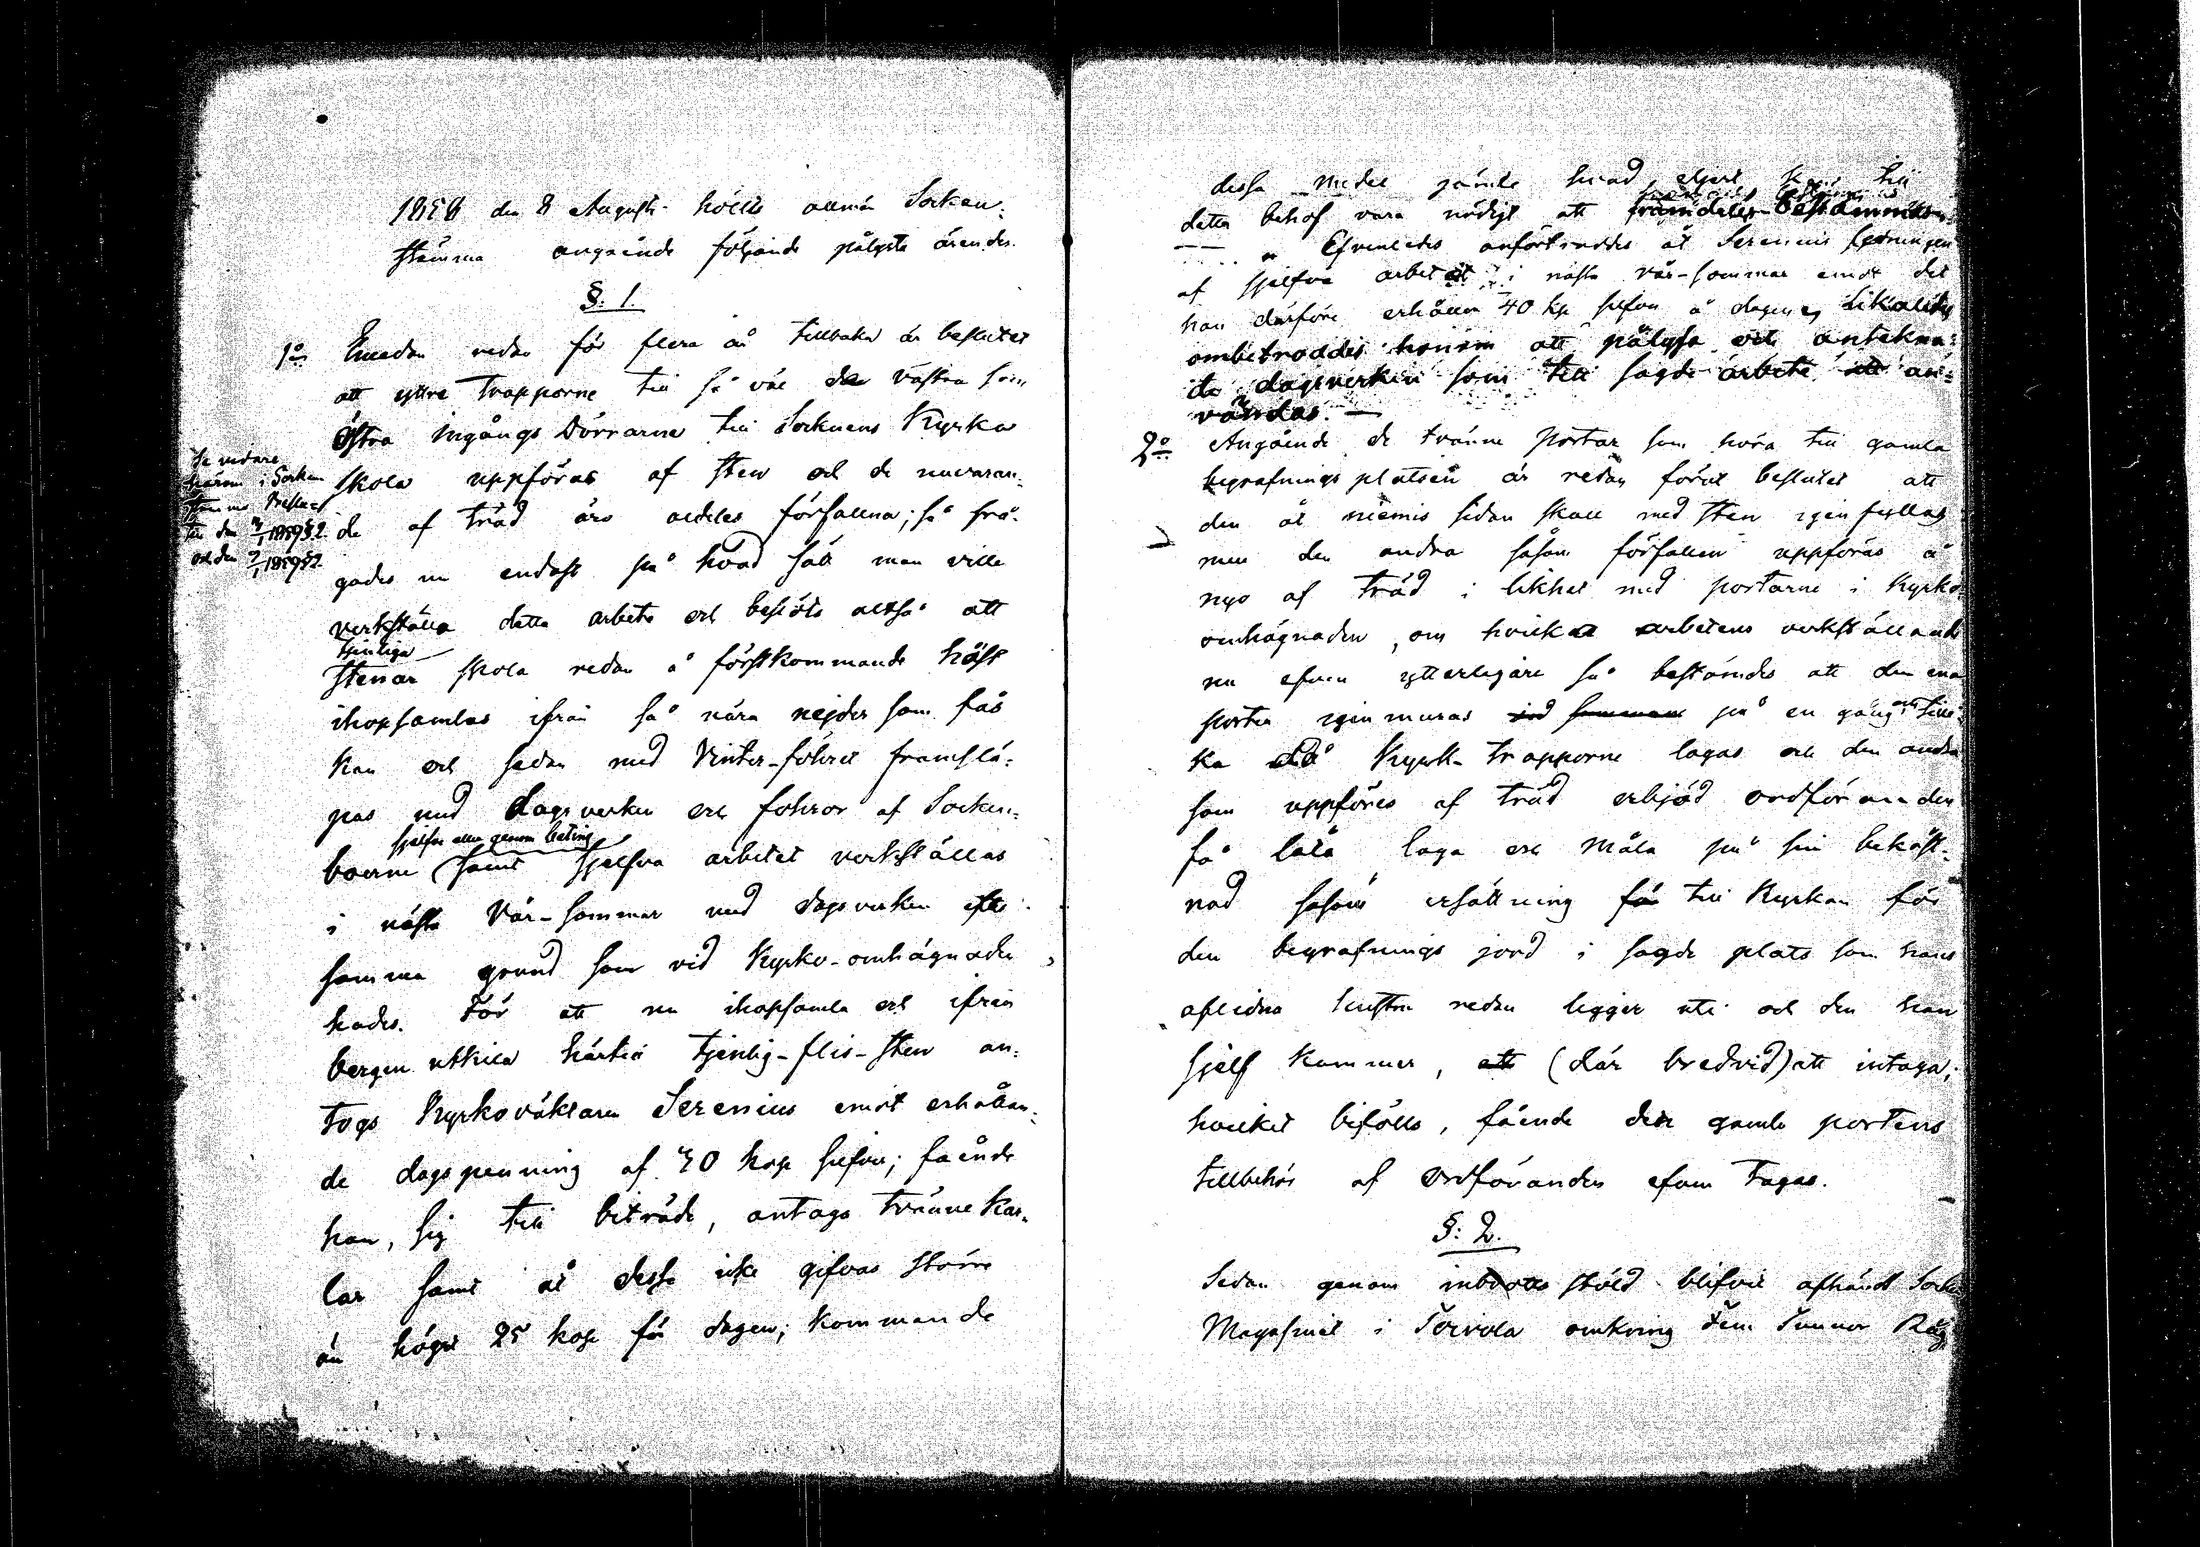 1858 den 8 Augusti hölls allmän Socken-
stämma angående följande pålyste ärender.
§: 1.
1:o Emedan redan för flera år tillbaka är beslutet
att yttre Trapporne till så väl de Västra som
Östra Ingångs Dörrarne till Socknens Kyrka
skola uppföras af sten och de nuvaran-
de af träd äro aldeles förfallna; så frå-
gades nu endast på hvad sätt man ville
verkställa detta arbete och beslöts altså att
tjenliga
stenar skola redan å förstkommande höst
ihopsamlas ifrån så nära nejder som fås
kan och sedan med Vinter-föhret framslä-
pas med dagsverken och fohror af Socken-
sjelfva eller genom beting
boerne samt sjelfva arbetet verkställas
i nästa Vår-sommar med dagsverken efter
samma grund som vid Kyrko-omhägnaden
hades. För att nu ihopsamla och ifrån
bergen utkila härtill tjenlig-flis-sten an-
togs Kyrkoväktaren Serenius emot erhållan-
de dagspenning af 40 kop silfver; fående
han, sig till biträde, antaga tvänne Kar-
lar samt åt dessa icke gifvas större
än högst 25 kop för dagen; kommande
Se vidare
härom i Socken
stämmo Beslut
den 1859 §2.
och den 1859 §2.
dessa medel jämte hvad eljest till
detta behof vara nödigt att framdeles bestämmas
Efvenledes anförtroddes åt Serenius ledningen
af sjelfva arbetet i nästa vår-sommar emot det
han därföre erhåller 40 kop silfver å dagen, likaledes
ombetroddes honom att pålysa och antekna
de dagsverken som till sagde arbete an-
vändas. —
2:o Angående de tvänne Portar som höra till gamla
begrafnings platsen är redan förut beslutet att
den åt niemis sidan skall med sten igenfyllas
men den andra såsom förfallen uppföras å
nyo af träd i likhet med portarne i Kyrko-
omhägnaden, om hvilka arbetens verkställande
nu efven ytterligare så bestämdes att den ena
porten igenmuras på en gång och
ka då Kyrk-trapporne lagas och den andra
som uppföres af träd erbjöd ordföranden
få låta laga och måla på sin bekost-
nad såsom ersättning för till Kyrkan för
den begrafnings jord i sagde plats som hans
aflidna hustru redan ligger uti och den han
sjelf kommer, att (där bredvid) att intaga,
hvilket bifölls, fående den gamla portens
tillbehör af Ordföranden efven tagas.
§: 2.
Sedan genom inbrotts stöld blifvit afhändt Socken
Magasinet i Soivola omkring Fem Tunnor Råg